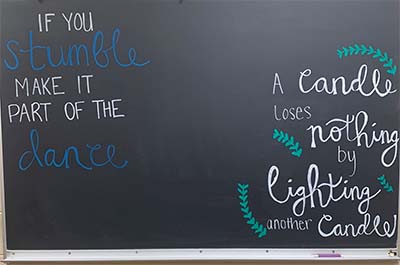 IF YOU
stumble
MAKE IT
PART OF THE
dance
A candle
loses
nothing
by
lighting
another candle